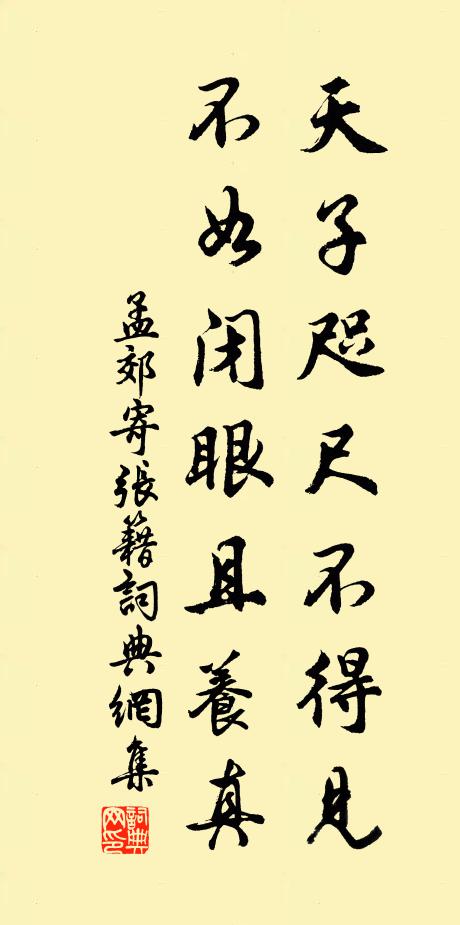 天子咫尺不得見
不如闭眼且養真
孟郊寄張籍詞典網集
詞典网印